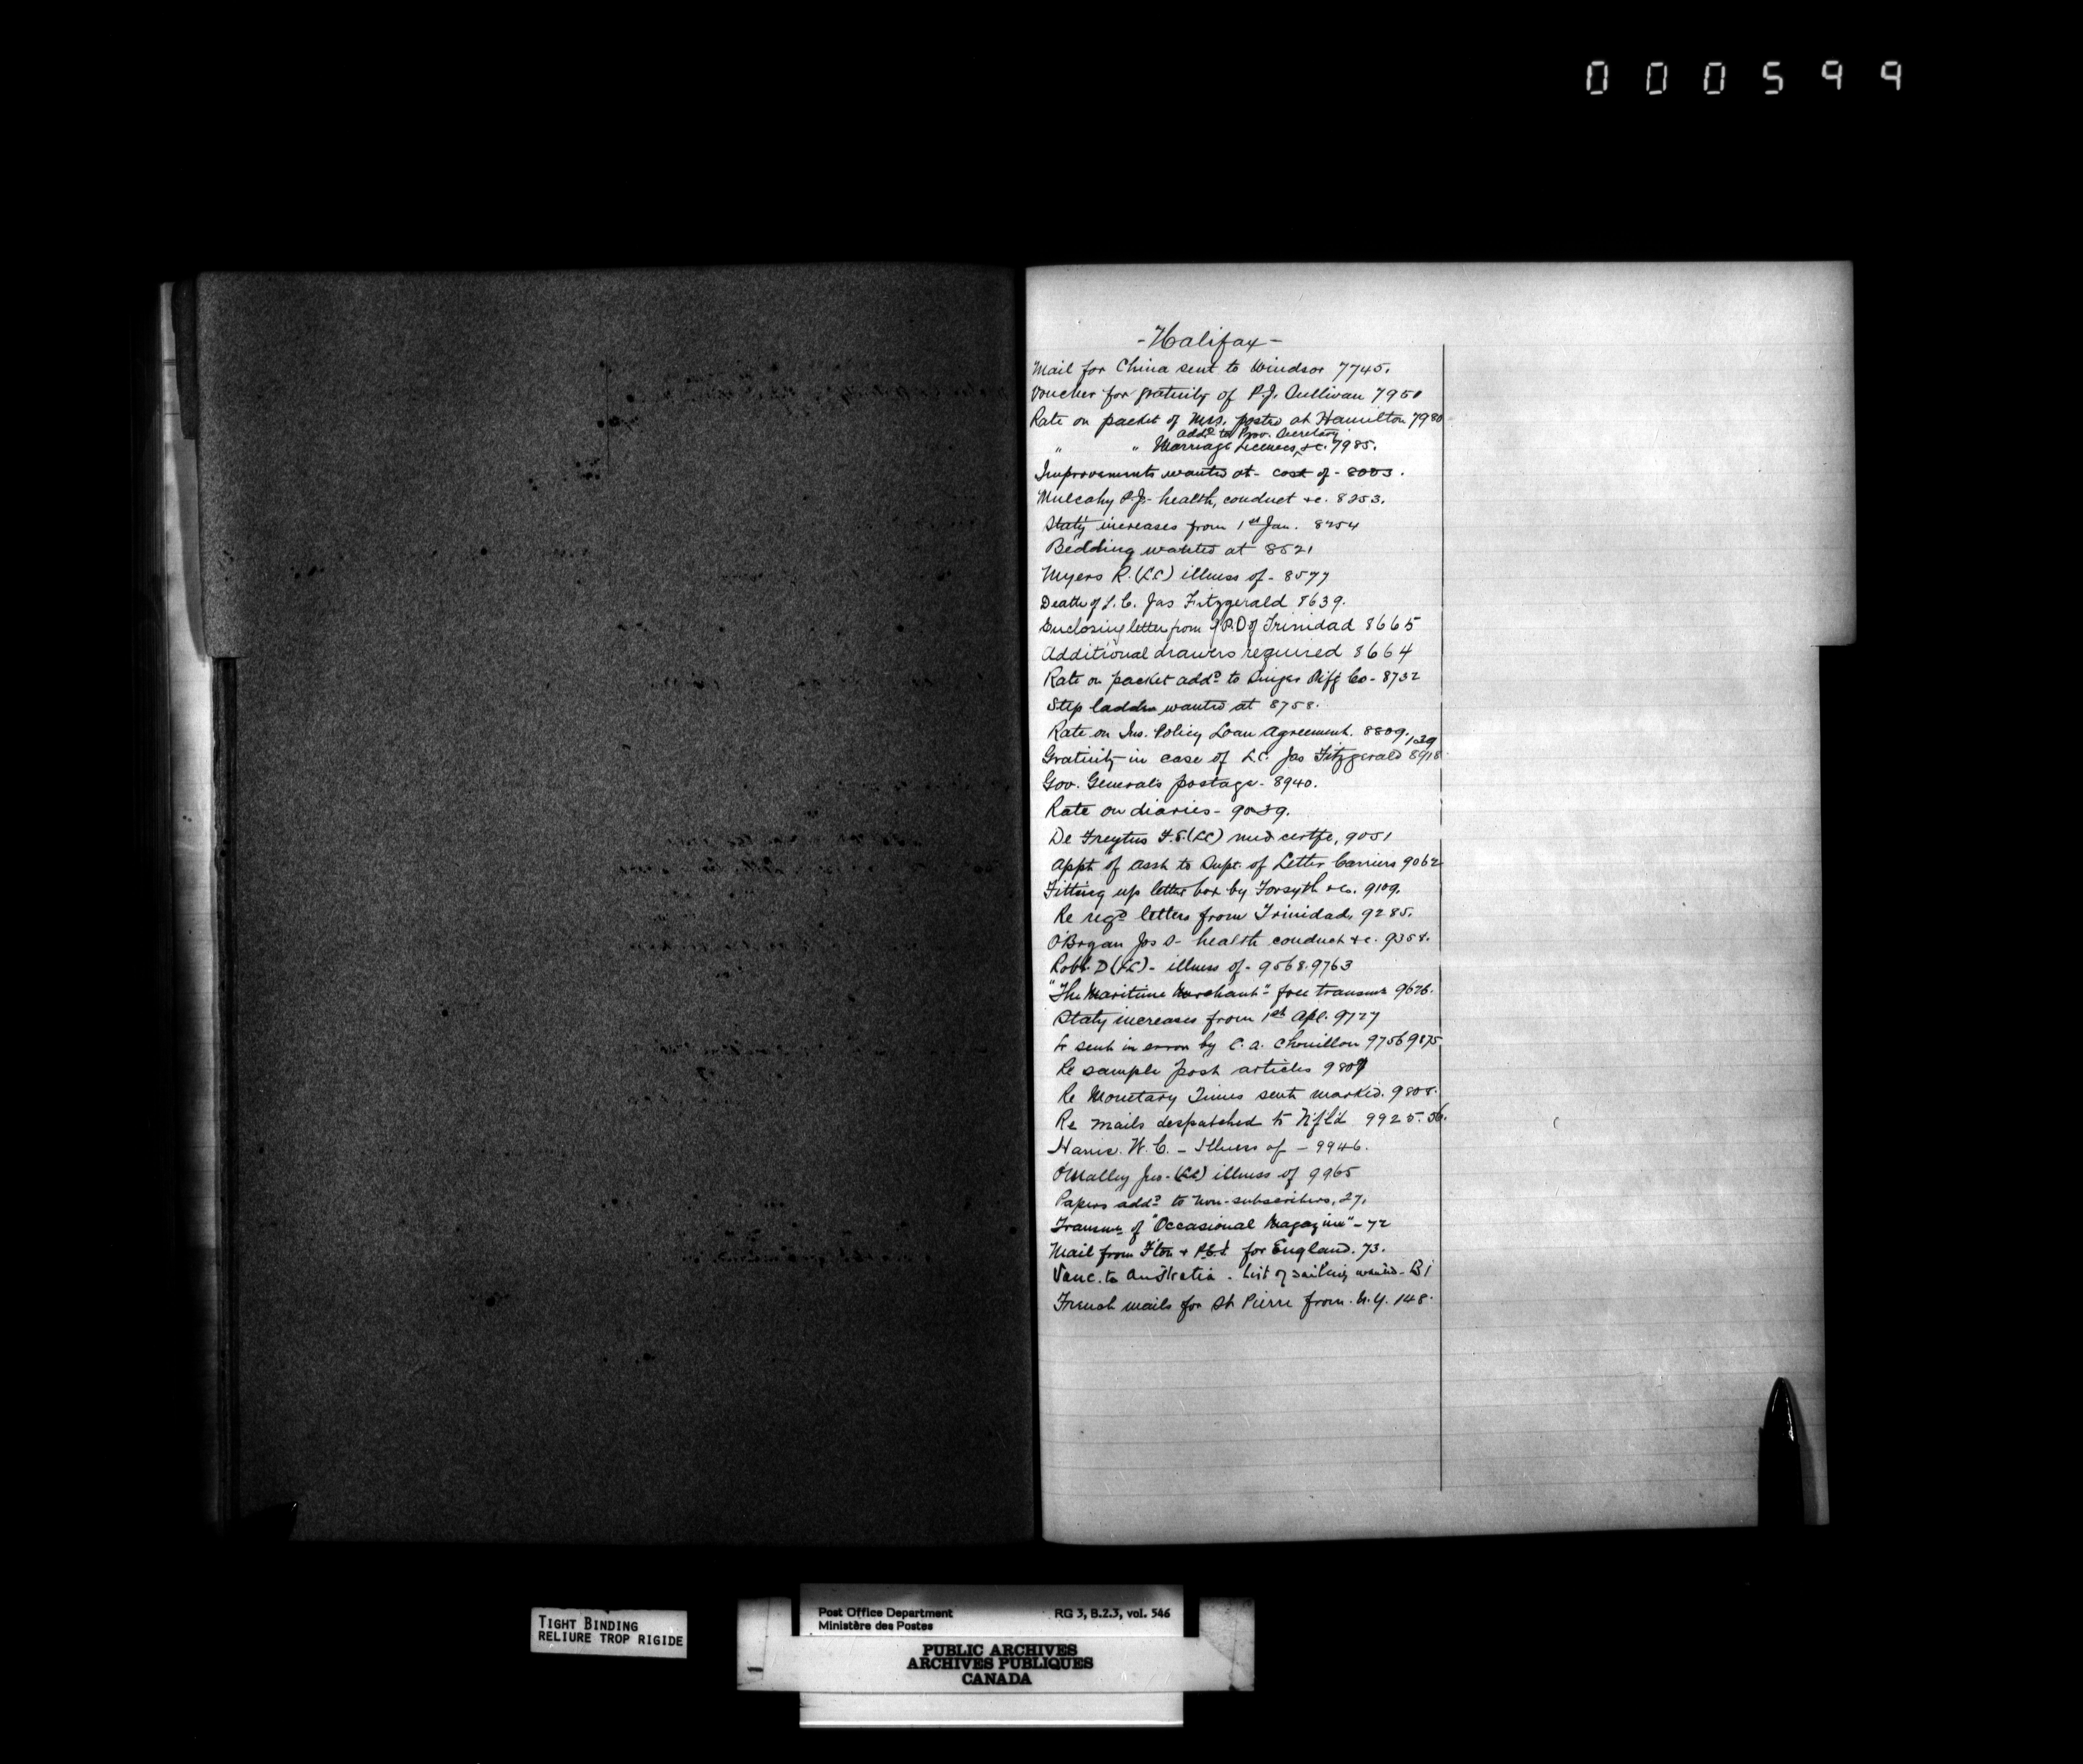 000599
- Halifax -
Mail for China sent to Windsor 7745.
Voucher for gratuity of P.J. Sullivan 7950
Rate on packet of Mss. posted at Hamilton 7980
add'd to Prov. Secretary
" " Marriage Licenses, &c. 7985.
Improvements wanted at - cost of - 8003.
Mulcahy P.J. - health, conduct &c. 8253.
Staty increases from 1st Jan. 8254
Bedding wanted at 8521
Myers R. (LC) illness of - 8577
Death of L.C. Jas Fitzgerald 8639.
Enclosing letter from G.P.O of Trinidad 8665
Additional drawers required 8664
Rate on packet addd to Singer Co - 8732
Step ladder wanted at 8758.
Rate on Ins. Policy Loan Agreement. 8809.
139
Gratuity in case of L.C. Jas Fitzgerald 8918
Gov. Generals postage - 8940.
Rate on diaries - 9039.
De Freytus F.S. (LC) med certfe, 9051
Appt of Asst to Supt. of Letter Carriers 9062
Fitting up letter box by Forsyth & Co. 9109.
Re regd letters from Trinidad, 9285.
O'Brgan Jos - health conduct &c. 9358.
Robt. D (LC) - illness of - 9568. 9763
"The Maritime Merchant" - free transmn 9626.
Staty increases from 1st Apl. 9727
sent in error by C. A. Chouillou 9756 9875
Re sample post articles 9807
Re Monetary Times sent marked. 9808.
Re mails despatched to Nfld 9925. 56.
Harris. W. C. - Illness of - 9946.
O'Malley Jas. (LC) illness of 9965
Papers addd to non-subscribers, 27.
Transmn of "Occasional Magazine" - 72
Mail from Fton & P.E.I. for England. 73.
Vanc. to Australia - list of sailing wanted - 81
French mails for St Pierre from N.Y. 148.
TIGHT BINDING
RELIURE TROP RIGIDE
Post Office Department RG 3, B.2.3, vol. 546
Ministère des Postes
PUBLIC ARCHIVES
ARCHIVES PUBLIQUES
CANADA